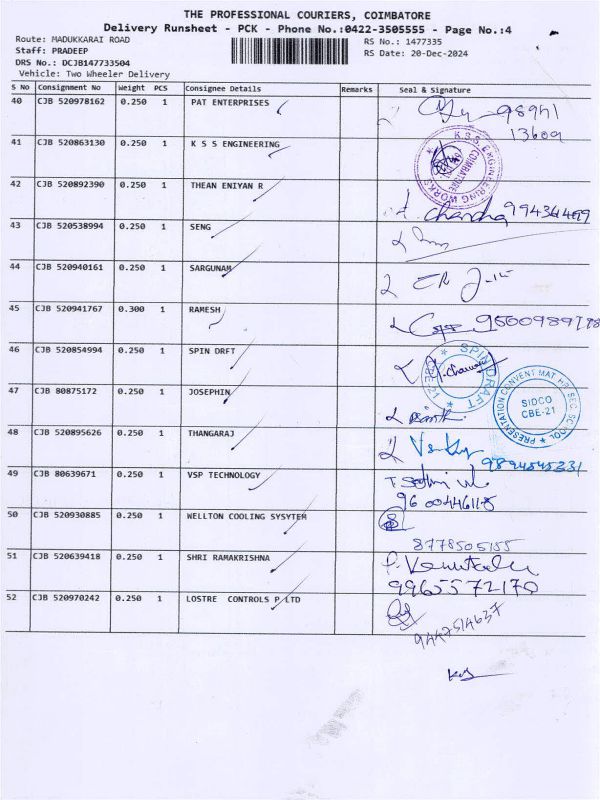 THE PROFESSIONAL COURIERS, COIMBATORE
Delivery Runsheet - PCK - Phone No.:0422-3505555 - Page No.:4
Route: MADUKKARAI ROAD
RS No.: 1477335
Staff: PRADEEP
RS Date: 20-Dec-2024
DRS No.: DCJB147733504
Vehicle: Two Wheeler Delivery
S No Consignment No Weight PCS Consignee Details Remarks Seal & Signature
40 CJB 520978162 0.250 1 PAT ENTERPRISES
13609
41 CJB 520863130 0.250 1 K S S ENGINEERING
K.S.S. ENGINEERING WORKS COIMBATORE
42 CJB 520892390 0.250 1 THEAN ENIYAN R
43 CJB 520538994 0.250 1 SENG
44 CJB 520940161 0.250 1 SARGUNAM
45 CJB 520941767 0.300 1 RAMESH
46 CJB 520854994 0.250 1 SPIN DRFT
SPIN DRAFT CBE-21
47 CJB 80875172 0.250 1 JOSEPHIN
PRESENTATION CONVENT MAT. HR. SEC. SCHOOL
SIDCO
CBE-21
48 CJB 520895626 0.250 1 THANGARAJ
9894545331
49 CJB 80639671 0.250 1 VSP TECHNOLOGY
9600446118
50 CJB 520930885 0.250 1 WELLTON COOLING SYSYTEM
8778505155
51 CJB 520639418 0.250 1 SHRI RAMAKRISHNA
9965572170
52 CJB 520970242 0.250 1 LOSTRE CONTROLS P LTD
9447514637